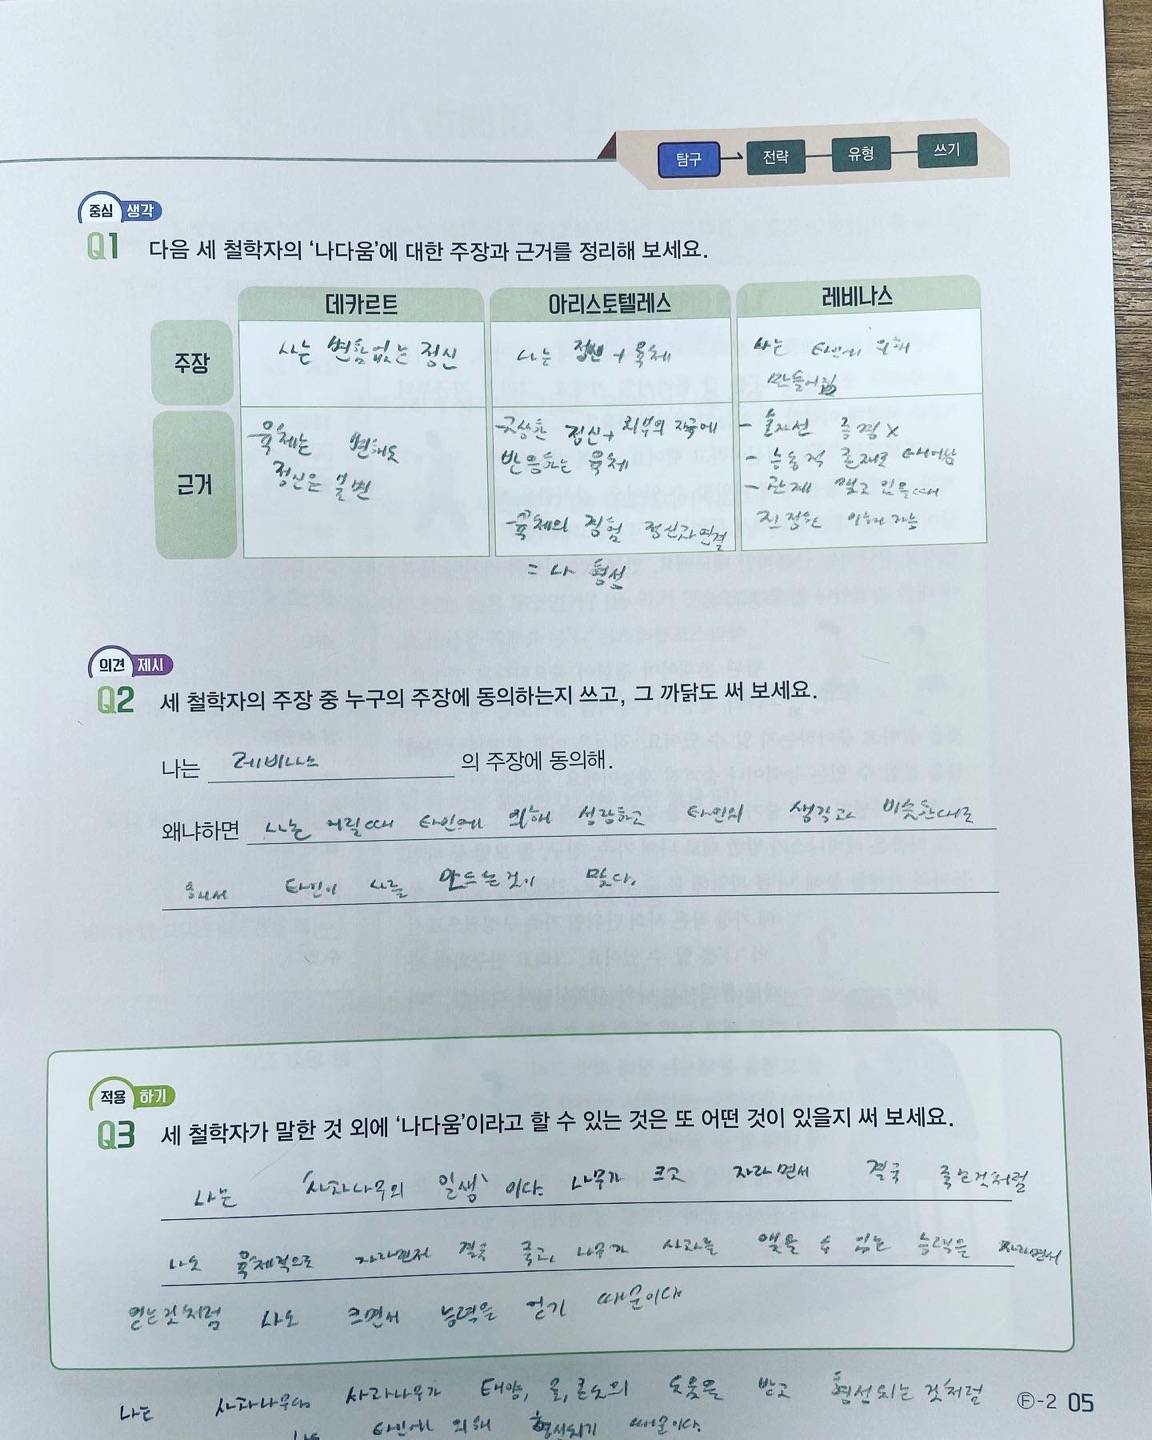 탐구 전략 유형 쓰기
중심 생각
Q1 다음 세 철학자의 ‘나다움’에 대한 주장과 근거를 정리해 보세요.
데카르트 아리스토텔레스 레비나스
주장
나는 변함없는 정신
나는 정신 + 육체
나는 타인에 의해
만들어짐
근거
육체는 변해도
정신은 불변
-구상한 정신+외부의 자극에
반응하는 육체
-육체의 경험 정신과 연결
= 나 형성
- 혼자선 존재 X
- 능동적 존재로 태어남
- 관계 맺고 있을때
진정한 이해 가능
의견 제시
Q2 세 철학자의 주장 중 누구의 주장에 동의하는지 쓰고, 그 까닭도 써 보세요.
나는 레비나스 의 주장에 동의해.
왜냐하면 나는 어릴때 타인에 의해 성장하고 타인의 생각과 비슷한대로
타인이 나를 만드는것이 맞다.
적용 하기
Q3 세 철학자가 말한 것 외에 ‘나다움’이라고 할 수 있는 것은 또 어떤 것이 있을지 써 보세요.
나는 ‘사과나무의 일생’ 이다. 나무가 크고 자라면서 결국 죽는것처럼
나도 육체적으로 자라면서 결국 죽고, 나무가 사과를 맺을 수 있는 능력을 자라면서
얻는것처럼 나도 크면서 능력을 얻기 때문이다
나는 사과나무다 사과나무가 태양, 물, 온도의 도움을 받고 형성되는 것처럼
나는 타인에 의해 형성되기 때문이다.
Ⓕ-2 05